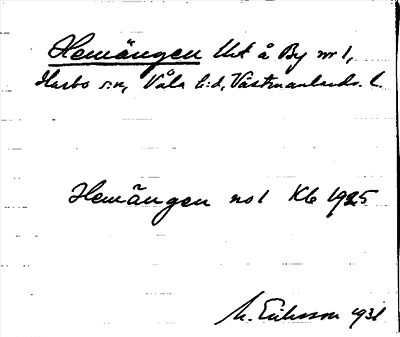 Hemängen Urt å By nr 1,
Harbo s:n, Våla h:d, Västmanlands l.
Hemängen no 1 Kb 1925
M. Eriksson 1931